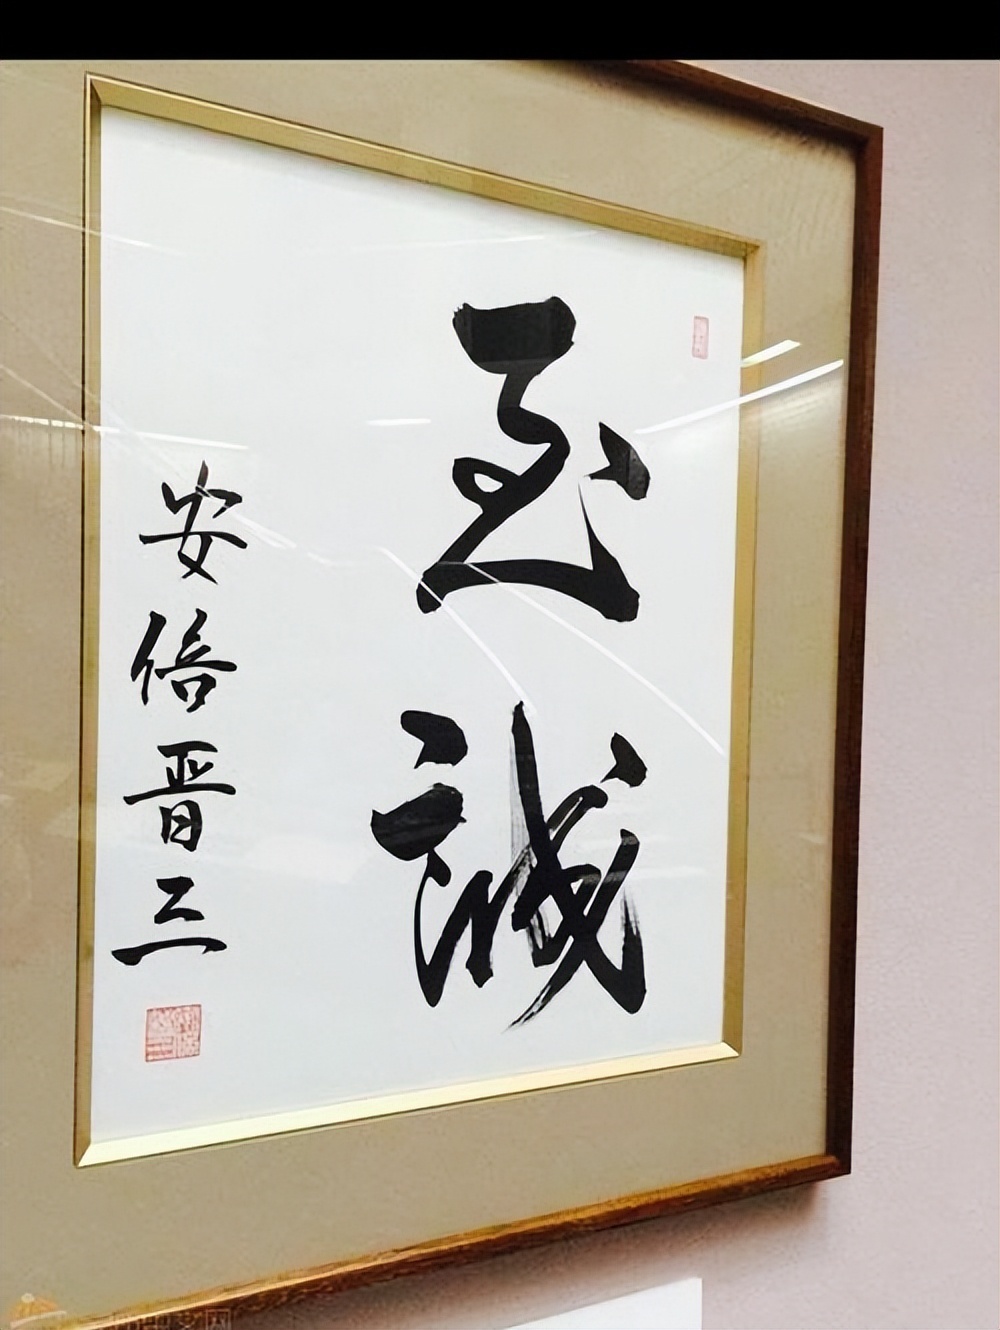 至誠
安倍晋三